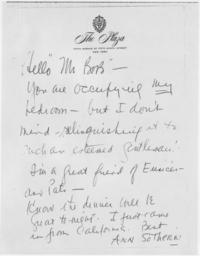 The Plaza
FIFTH AVENUE AT FIFTY-NINTH STREET
NEW YORK
"Hello" Mr Bors —
You are occupying my
bedroom — but I don't
mind relinquishing it to
such an esteemed gentleman!
I'm a great friend of Eunice
and Pat's —
Know its dinner will be
great tonight. I just came
in from California. Best
ANN SOTHERN